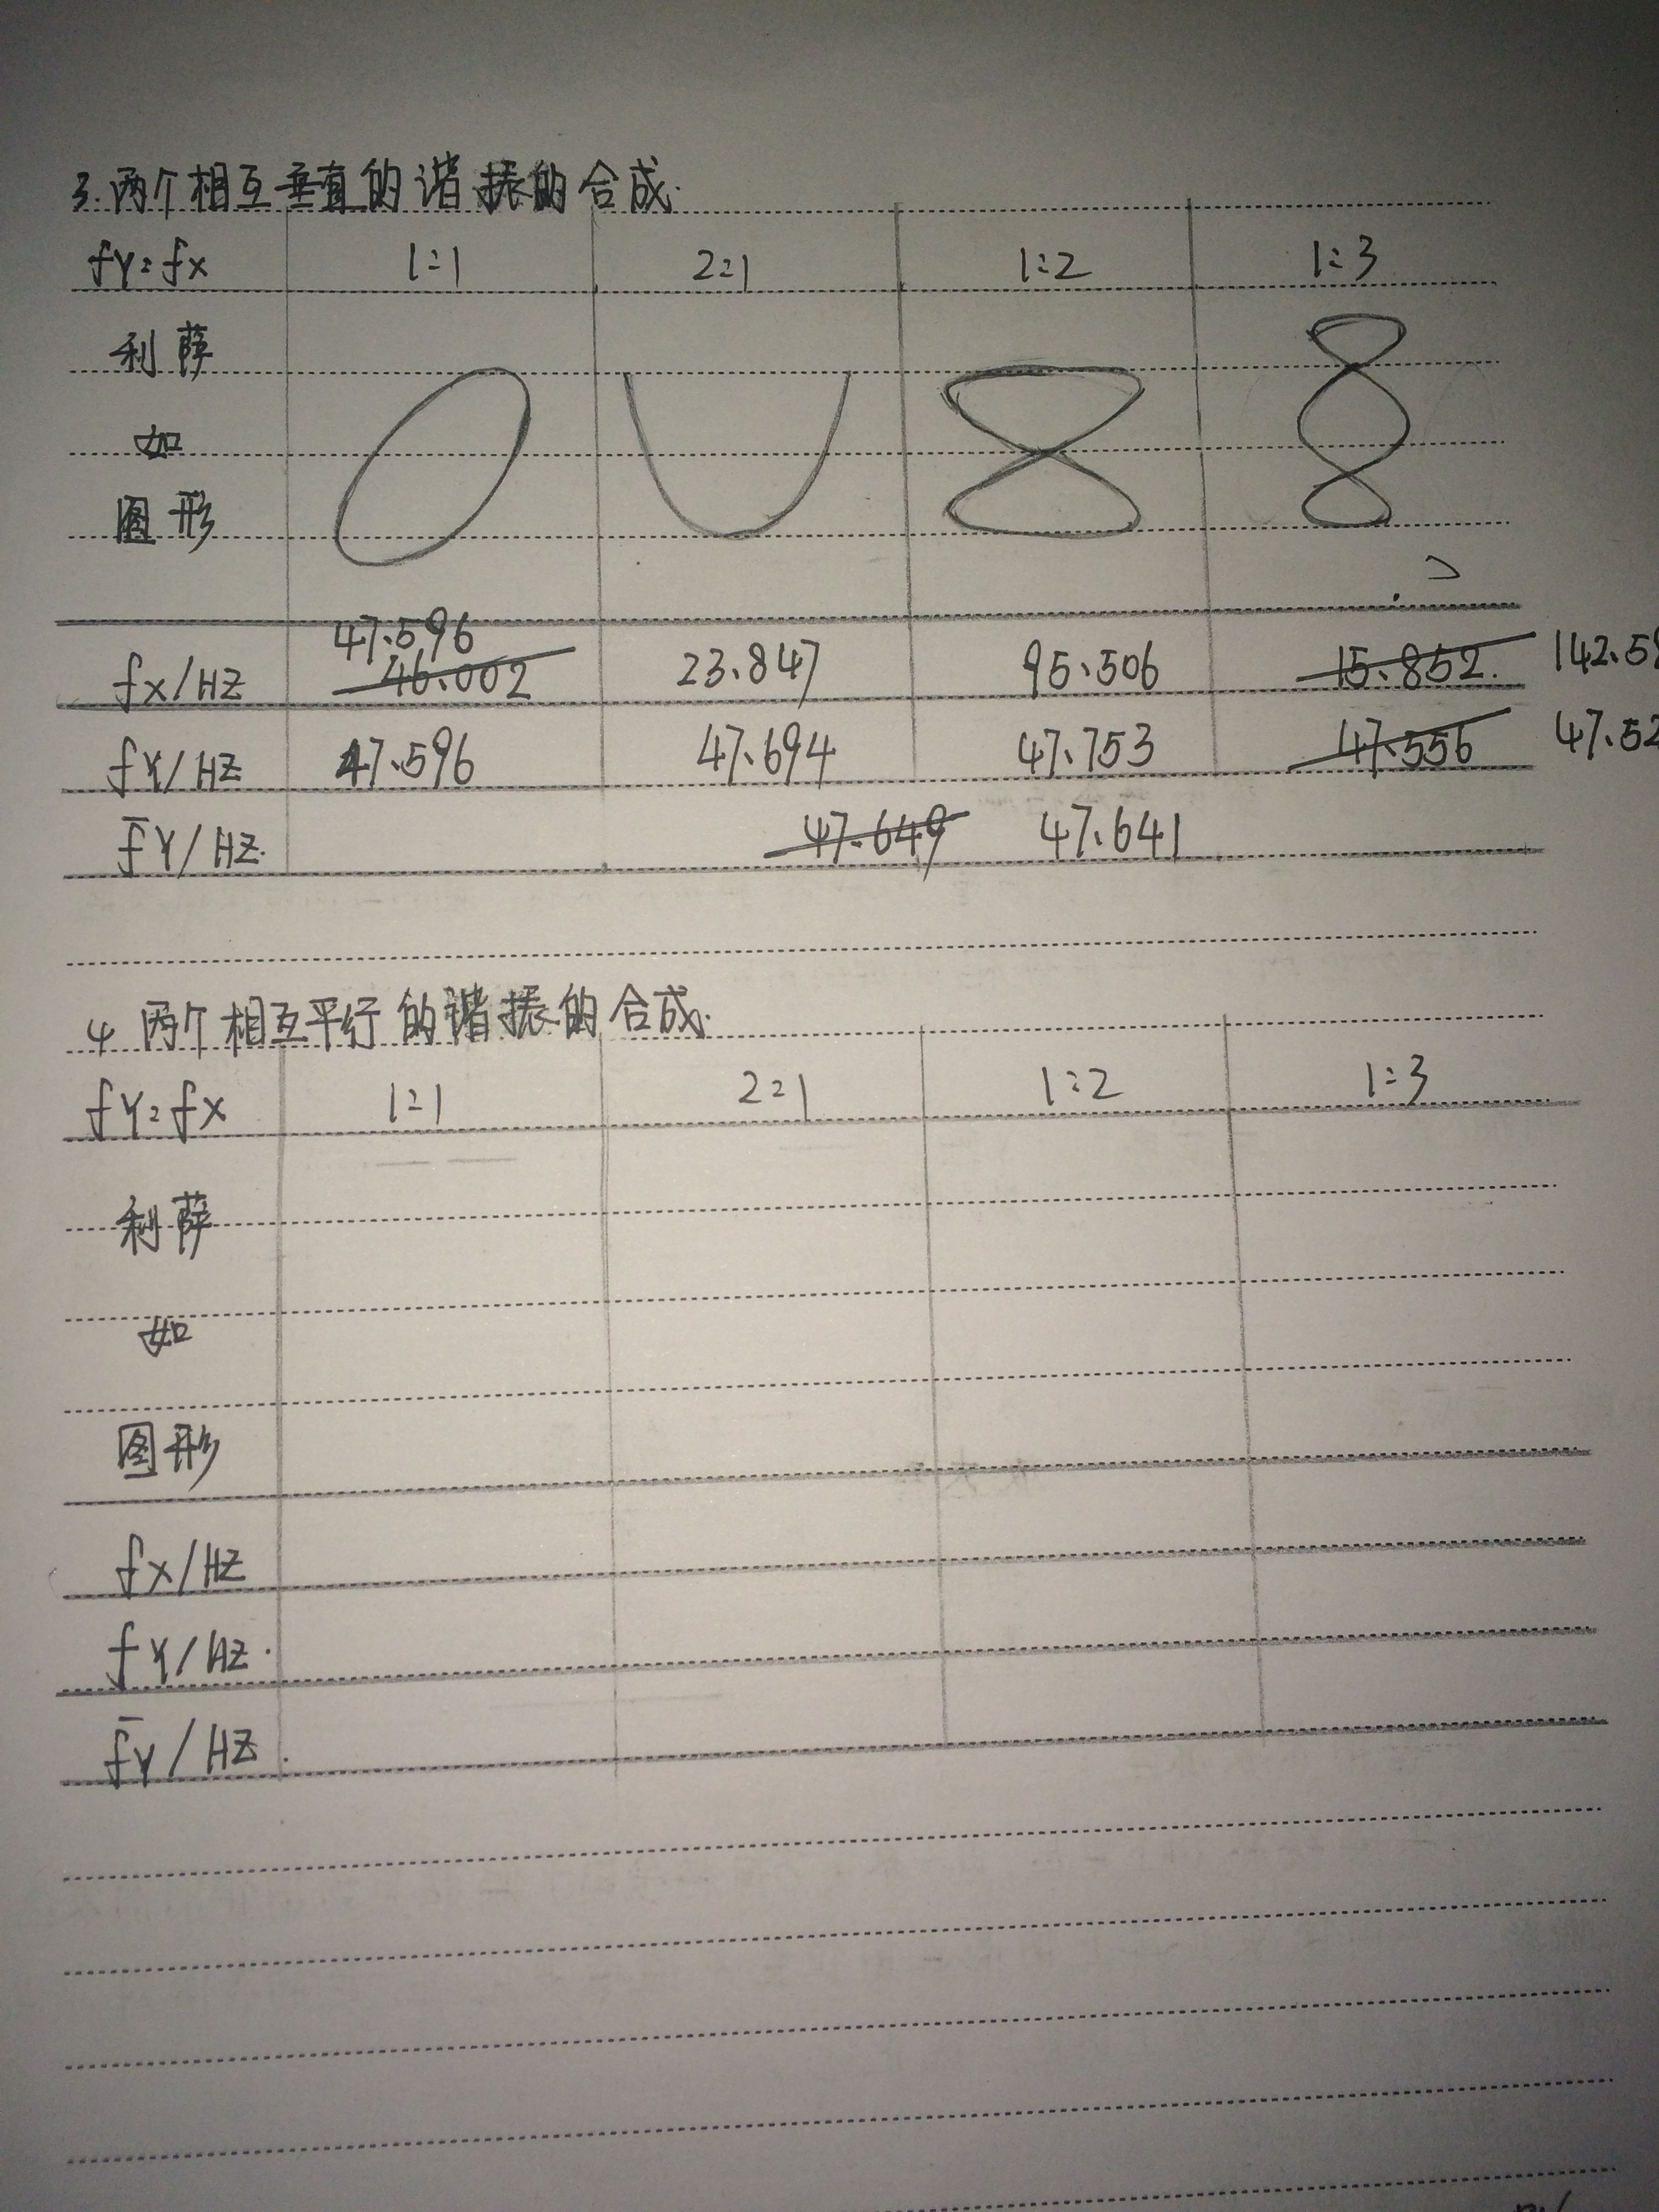 3.两个相互垂直的谐振的合成.
fY:fx 1:1 2:1 1:2 1:3
利萨
如
图形
47.596
fx/HZ 46.002 23.847 95.506 15.852. 142.5
fY/HZ 47.596 47.694 47.753 47.556 47.52
f̄Y/HZ. 47.649 47.641
4 两个相互平行的谐振的合成.
fY:fx 1:1 2:1 1:2 1:3
利萨
如
图形
fx/HZ
fY/HZ.
f̄Y/HZ.